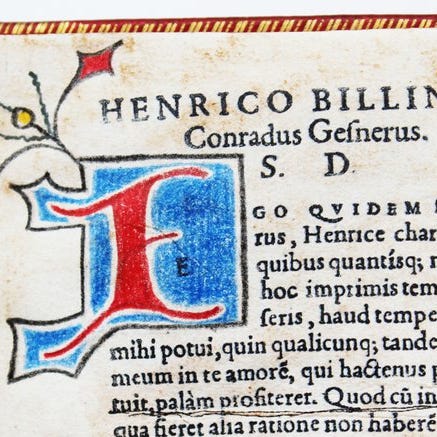 HENRICO BILLIN
Conradus Geſnerus.
S. D.
E
GO QVIDEM
rus, Henrice char
quibus quantíſq;
hoc imprimis tem
feris, haud tempe
mihi potui, quin qualicunq; tande
meum in te amorẽ, qui hactenus p
tuit, palàm profiterer. Quod cũ in
qua fieret alia ratione non haberẽ